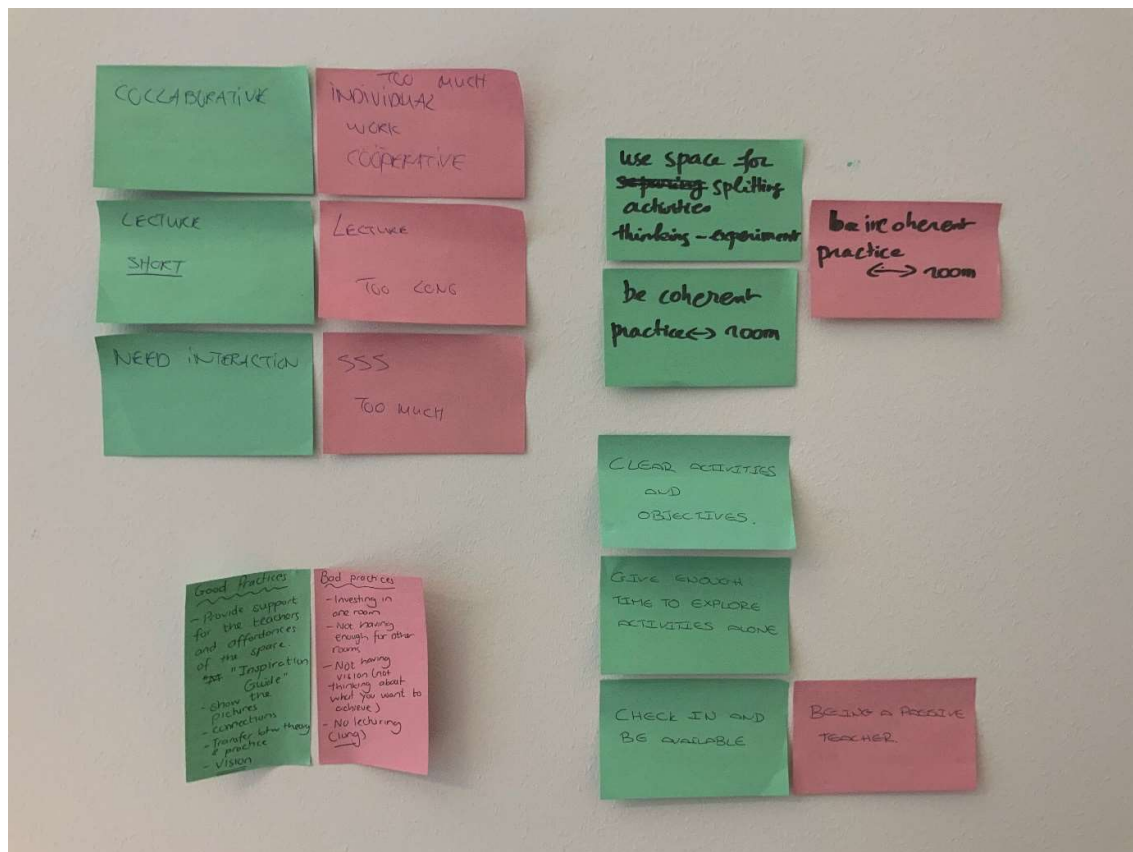 COLLABORATIVE
TOO MUCH
INDIVIDUAL
WORK
COÖPERATIVE
LECTURE
SHORT
LECTURE
TOO LONG
NEED INTERACTION
SSS
TOO MUCH
use space for
splitting
activities
thinking - experiment
be coherent
practice <-> room
be incoherent
practice
<-> room
CLEAR ACTIVITIES
AND
OBJECTIVES.
GIVE ENOUGH
TIME TO EXPLORE
ACTIVITIES ALONE
CHECK IN AND
BE AVAILABLE
BEING A PASSIVE
TEACHER.
Good Practices
- Provide support
for the teachers
and affordances
of the space.
"Inspiration
Guide"
- Show the
pictures
- connections
- Transfer btw theory
& practice
- Vision
Bad practices
- Investing in
one room
- Not having
enough for other
rooms
- Not having
vision (not
thinking about
what you want to
achieve)
- No lecturing
(long)